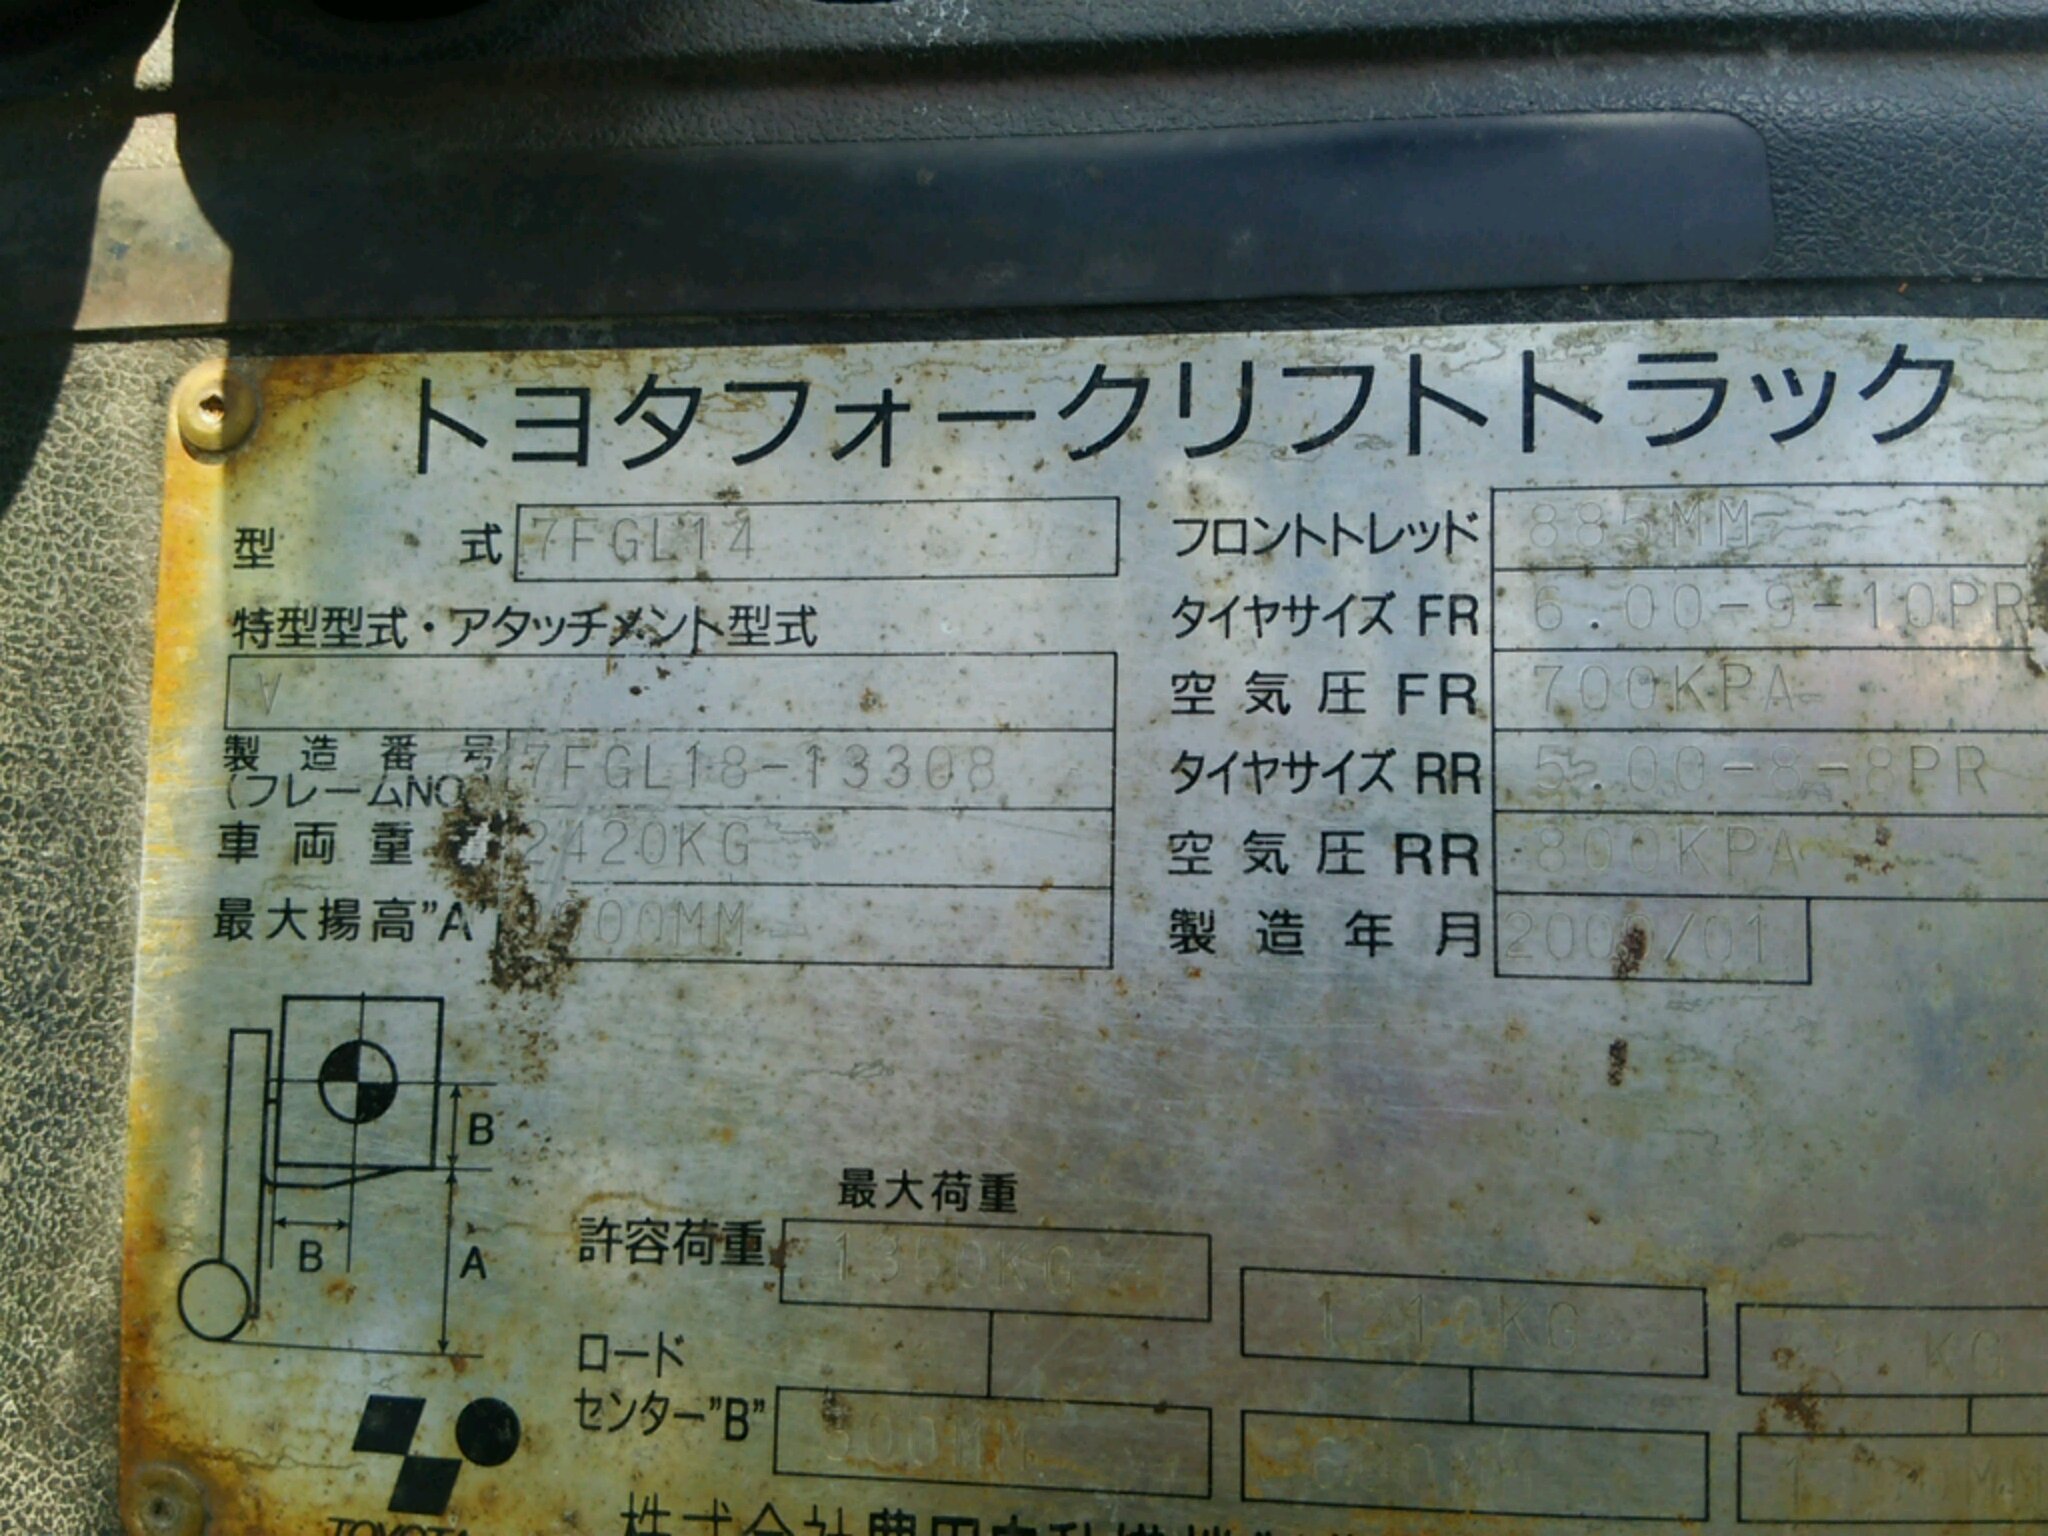 トヨタフォークリフトトラック
型 式 7FGL14
特型型式・アタッチメント型式
V
製造番号 7FGL18-13308
(フレームNO
車両重 2420KG
最大揚高"A" 000MM
フロントトレッド 885MM
タイヤサイズ FR 6.00-9-10PR
空気圧 FR 700KPA
タイヤサイズ RR 5.00-8-8PR
空気圧 RR 800KPA
製造年月 2000/01
B
B
A
最大荷重
許容荷重 1350KG 1210KG KG
ロード
センター"B" 500MM 600MM MM
TOYOTA
株式会社豊田自動織機